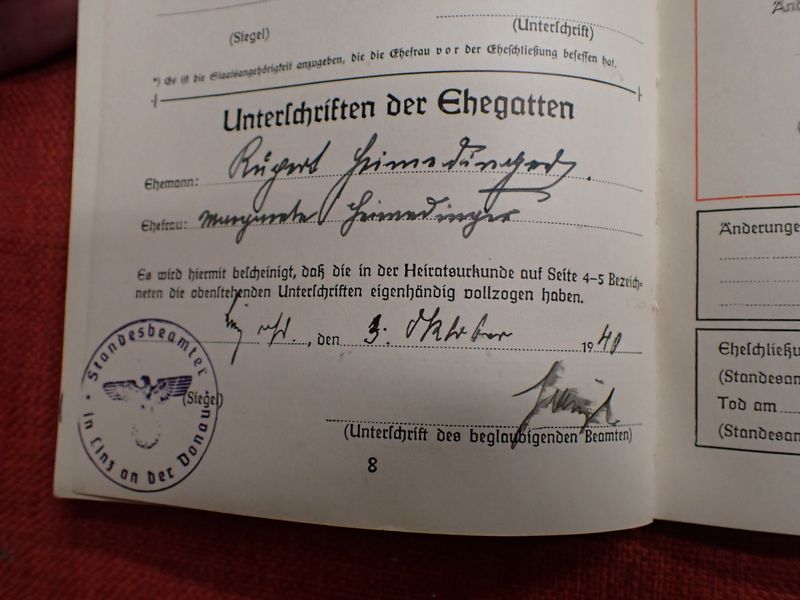 (Siegel)
(Unterschrift)
*) Es ist die Staatsangehörigkeit anzugeben, die die Ehefrau vor der Eheschließung besessen hat.
Unterschriften der Ehegatten
Ehemann: Rupert Heimedinger
Ehefrau: Margarete Heimedinger
Es wird hiermit bescheinigt, daß die in der Heiratsurkunde auf Seite 4-5 Bezeich-
neten die obenstehenden Unterschriften eigenhändig vollzogen haben.
, den 3. Oktober 1940
Standesbeamter
in Linz an der Donau
(Siegel)
(Unterschrift des beglaubigenden Beamten)
8
Änd
Änderunge
Eheschließu
(Standesan
Tod am
(Standesan